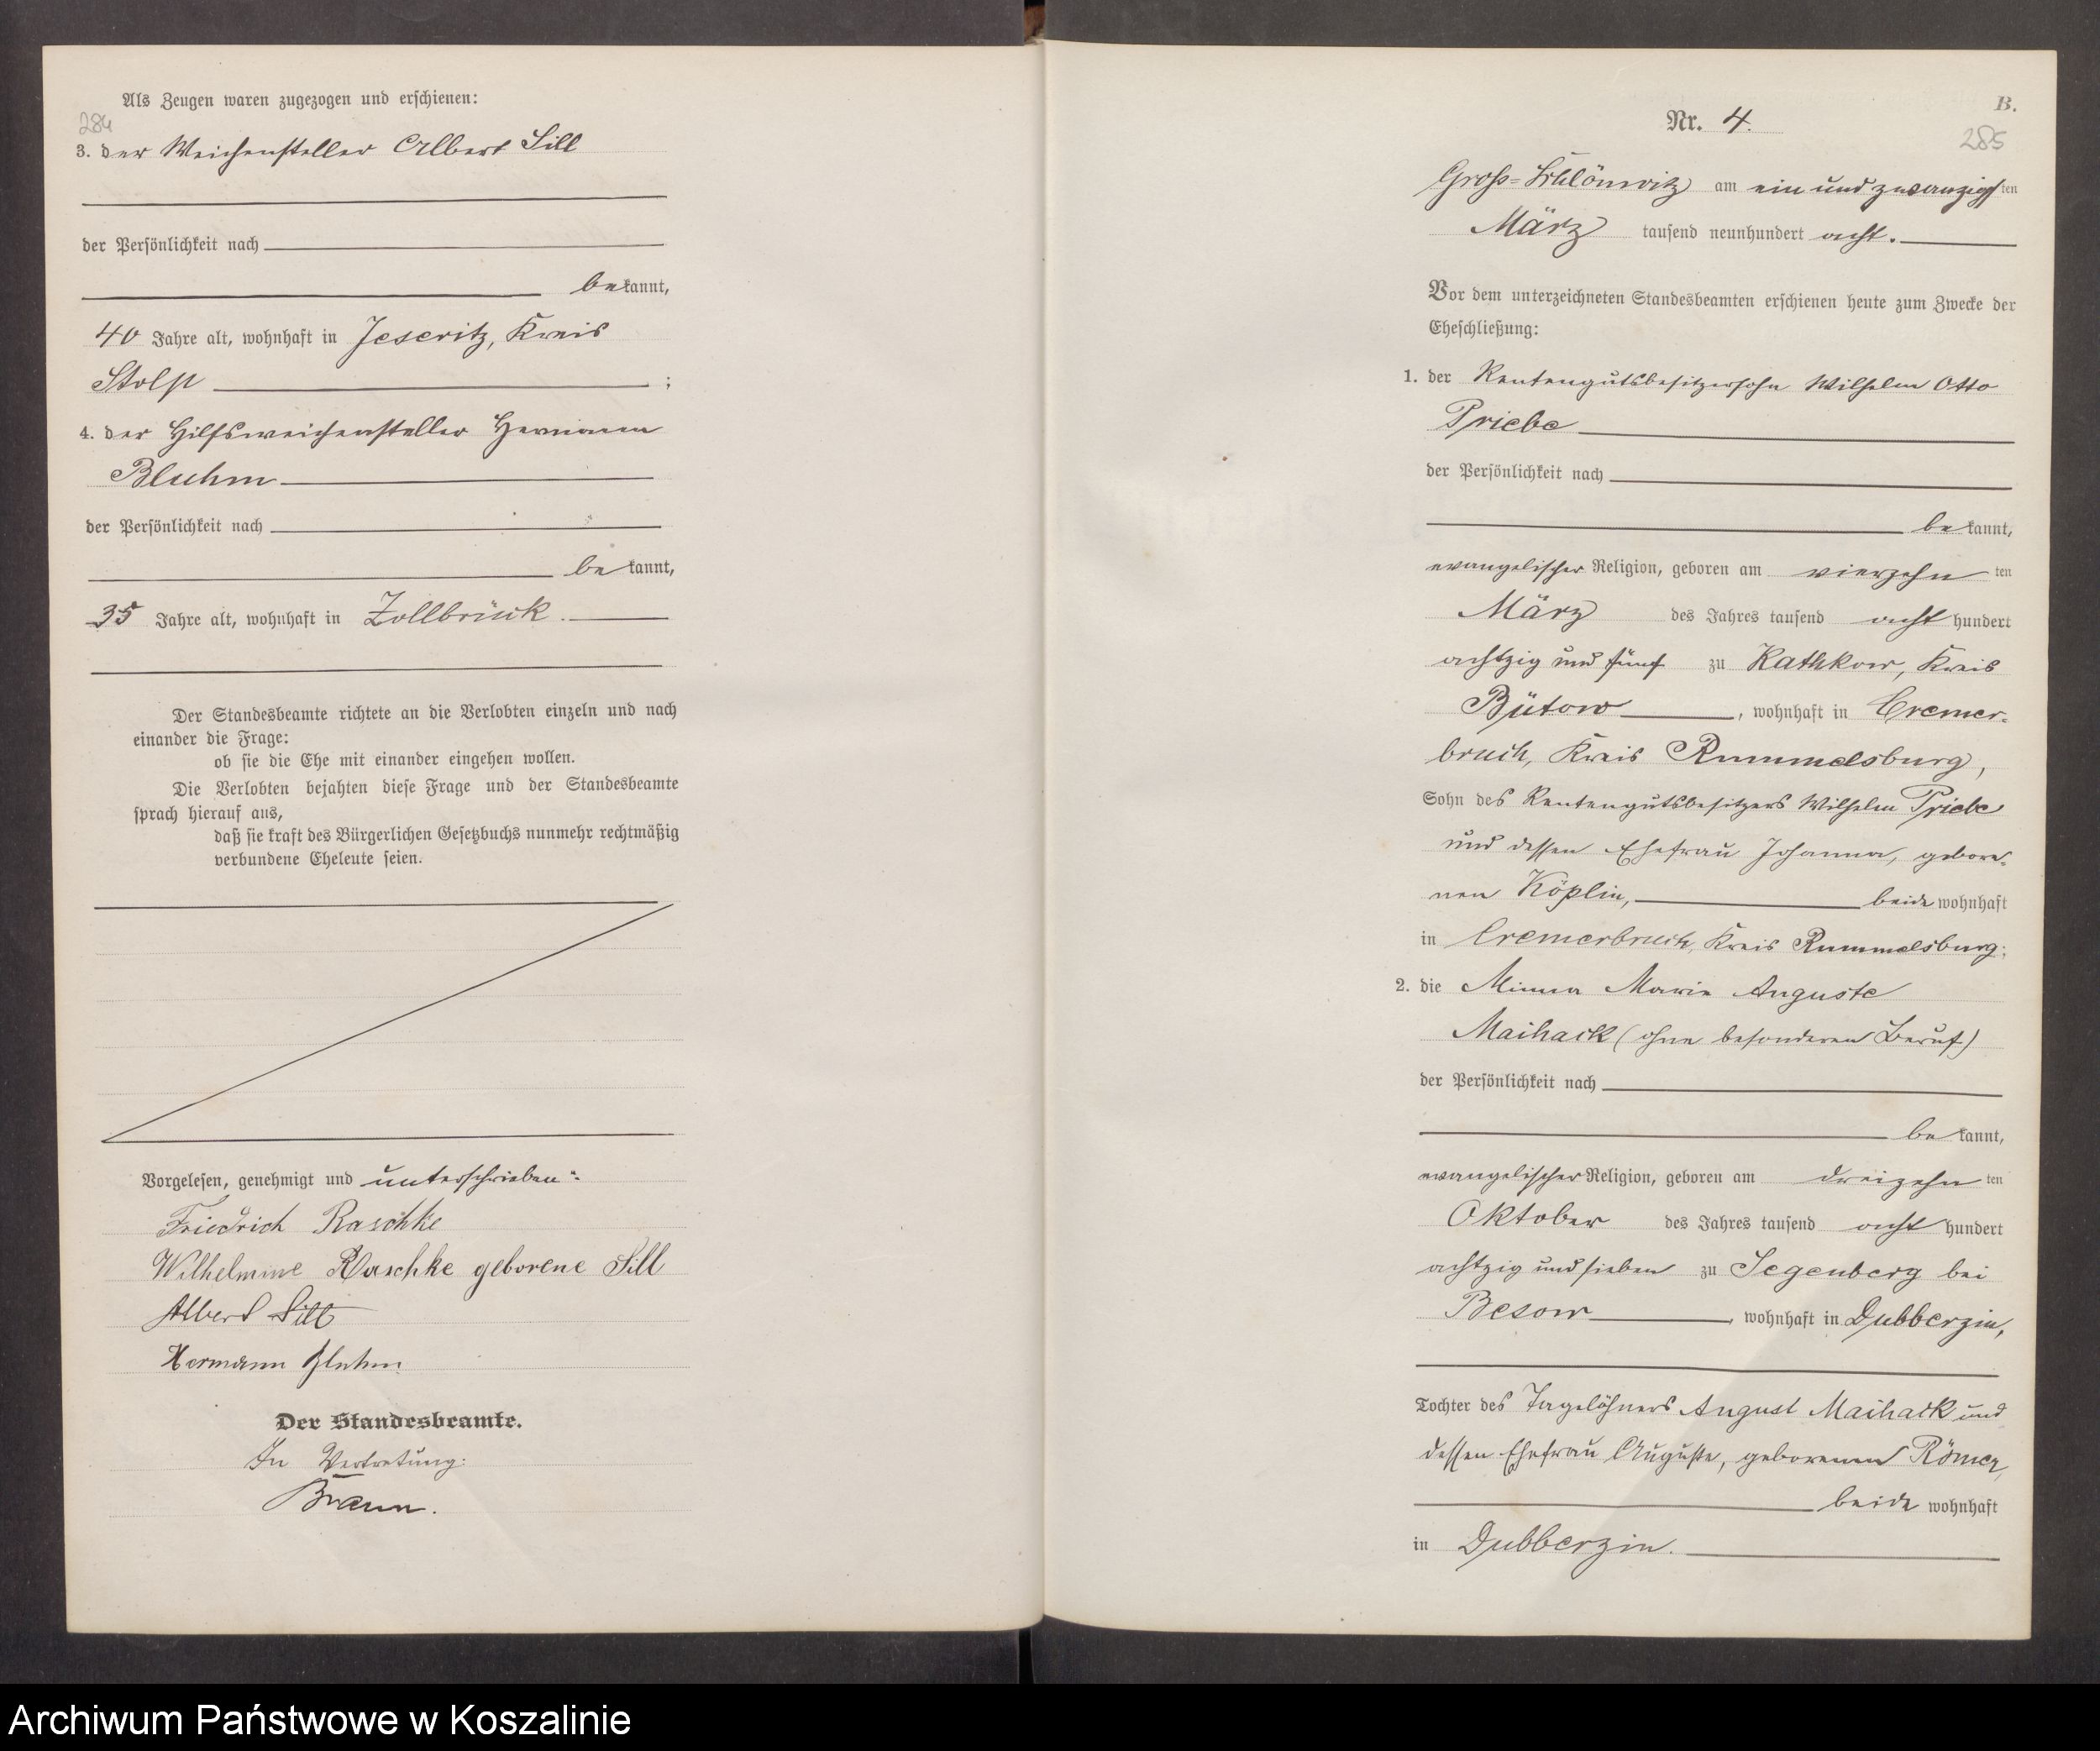 Als Zeugen waren zugezogen und erschienen:
284
3. der Weichensteller Albert Sill
der Persönlichkeit nach
bekannt,
40 Jahre alt, wohnhaft in Jeseritz, Kreis
Stolp ;
4. der Hilfsweichensteller Hermann
Bluhm
der Persönlichkeit nach
bekannt,
35 Jahre alt, wohnhaft in Zollbrück.
Der Standesbeamte richtete an die Verlobten einzeln und nach
einander die Frage:
ob sie die Ehe mit einander eingehen wollen.
Die Verlobten bejahten diese Frage und der Standesbeamte
sprach hierauf aus,
daß sie kraft des Bürgerlichen Gesetzbuchs nunmehr rechtmäßig
verbundene Eheleute seien.
Vorgelesen, genehmigt und unterschrieben:
Friedrich Raschke
Wilhelmine Raschke geborene Sill
Albert Sill
Hermann Bluhm
Der Standesbeamte.
In Vertretung:
Braun.
B.
Nr. 4.
285
Groß-Schlönwitz am ein und zwanzigsten
März tausend neunhundert acht.
Vor dem unterzeichneten Standesbeamten erschienen heute zum Zwecke der
Eheschließung:
1. der Rentengutsbesitzersohn Wilhelm Otto
Priebe
der Persönlichkeit nach
bekannt,
evangelischer Religion, geboren am vierzehnten
März des Jahres tausend acht hundert
achtzig und fünf zu Kathkow, Kreis
Bütow, wohnhaft in Cremer-
bruch, Kreis Rummelsburg,
Sohn des Rentengutsbesitzers Wilhelm Priebe
und dessen Ehefrau Johanna, gebore-
nen Köplin, beide wohnhaft
in Cremerbruch, Kreis Rummelsburg;
2. die Minna Marie Auguste
Maihack (ohne besonderen Beruf)
der Persönlichkeit nach
bekannt,
evangelischer Religion, geboren am dreizehnten
Oktober des Jahres tausend acht hundert
achtzig und sieben zu Segenberg bei
Besow, wohnhaft in Dubberzin,
Tochter des Tagelöhners August Maihack und
dessen Ehefrau Auguste, geborenen Römer,
beide wohnhaft
in Dubberzin.
Archiwum Państwowe w Koszalinie